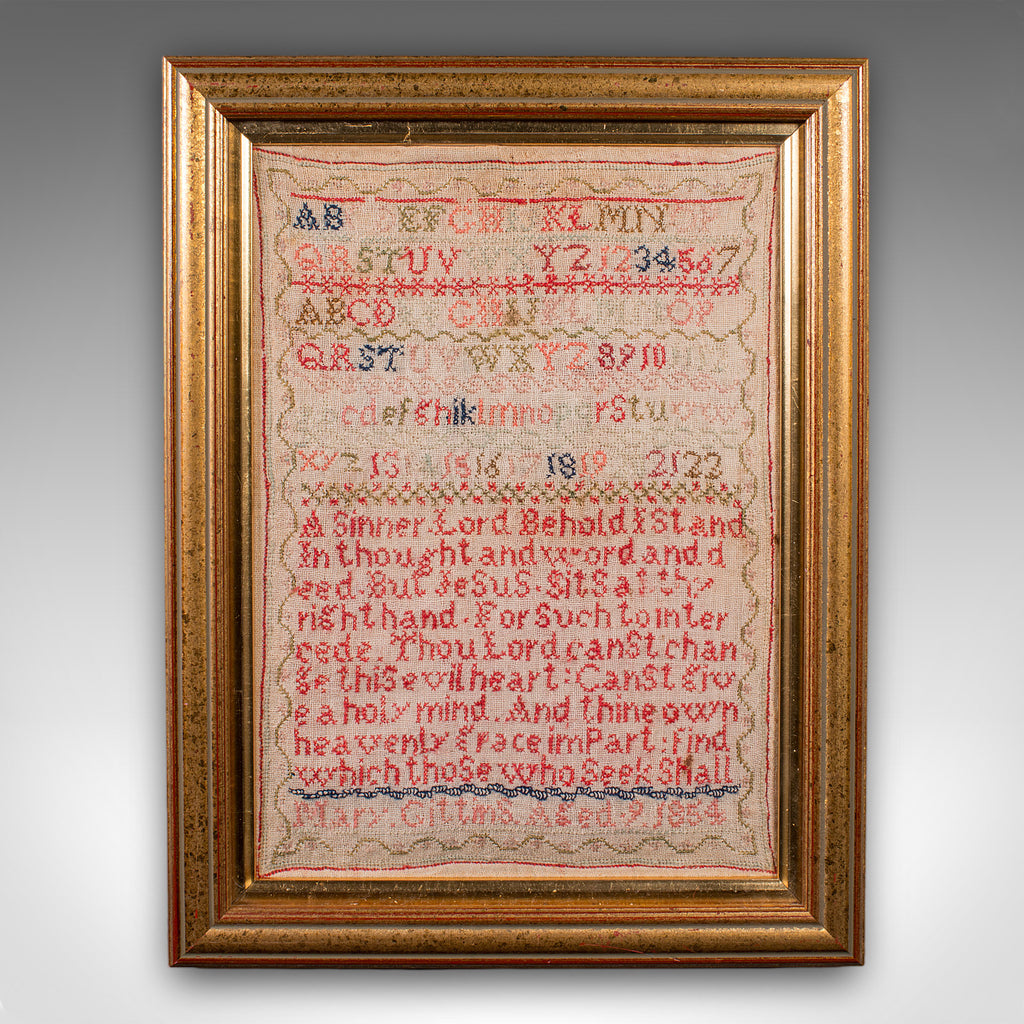 AB DEFGH KLMN OP
QRSTUV YZ1234567
ABCD GHIKL OP
QRSTUVWXYZ8910
cdefghiklmnopqrstuvw
xyz131415161718192122
A Sinner Lord Behold I Stand
In thought and word and d
eed. But Jesus. Sits at thy
right hand. For Such to inter
cede. Thou Lord canst chan
ge this evil heart: Canst give
e a holy mind. And thine own
heavenly grace impart: find
which those who Seek Shall
Mary Gittins. Aged. 9. 1884